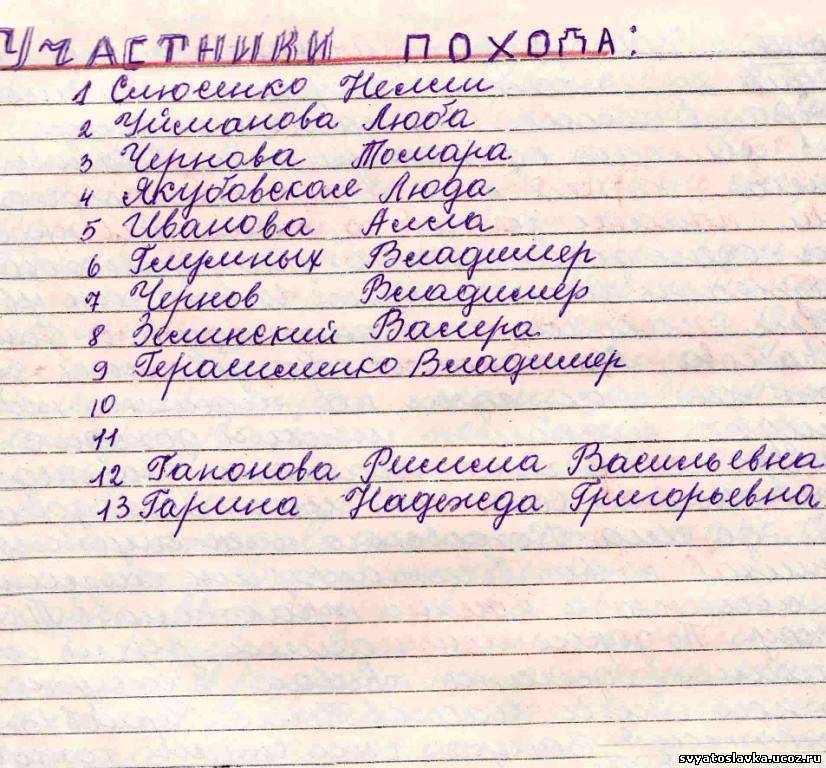 УЧАСТНИКИ ПОХОДА:
1 Слюсенко Нелли
2 Уйманова Люба
3 Чернова Томара
4 Якубовская Люда
5 Иванова Алла
6 Глумных Владимер
7 Чернов Владимер
8 Зелинский Валера
9 Герасименко Владимер
10
11
12 Гапонова Римма Васильевна
13 Гарина Надежда Григорьевна
svyatoslavka.ucoz.ru